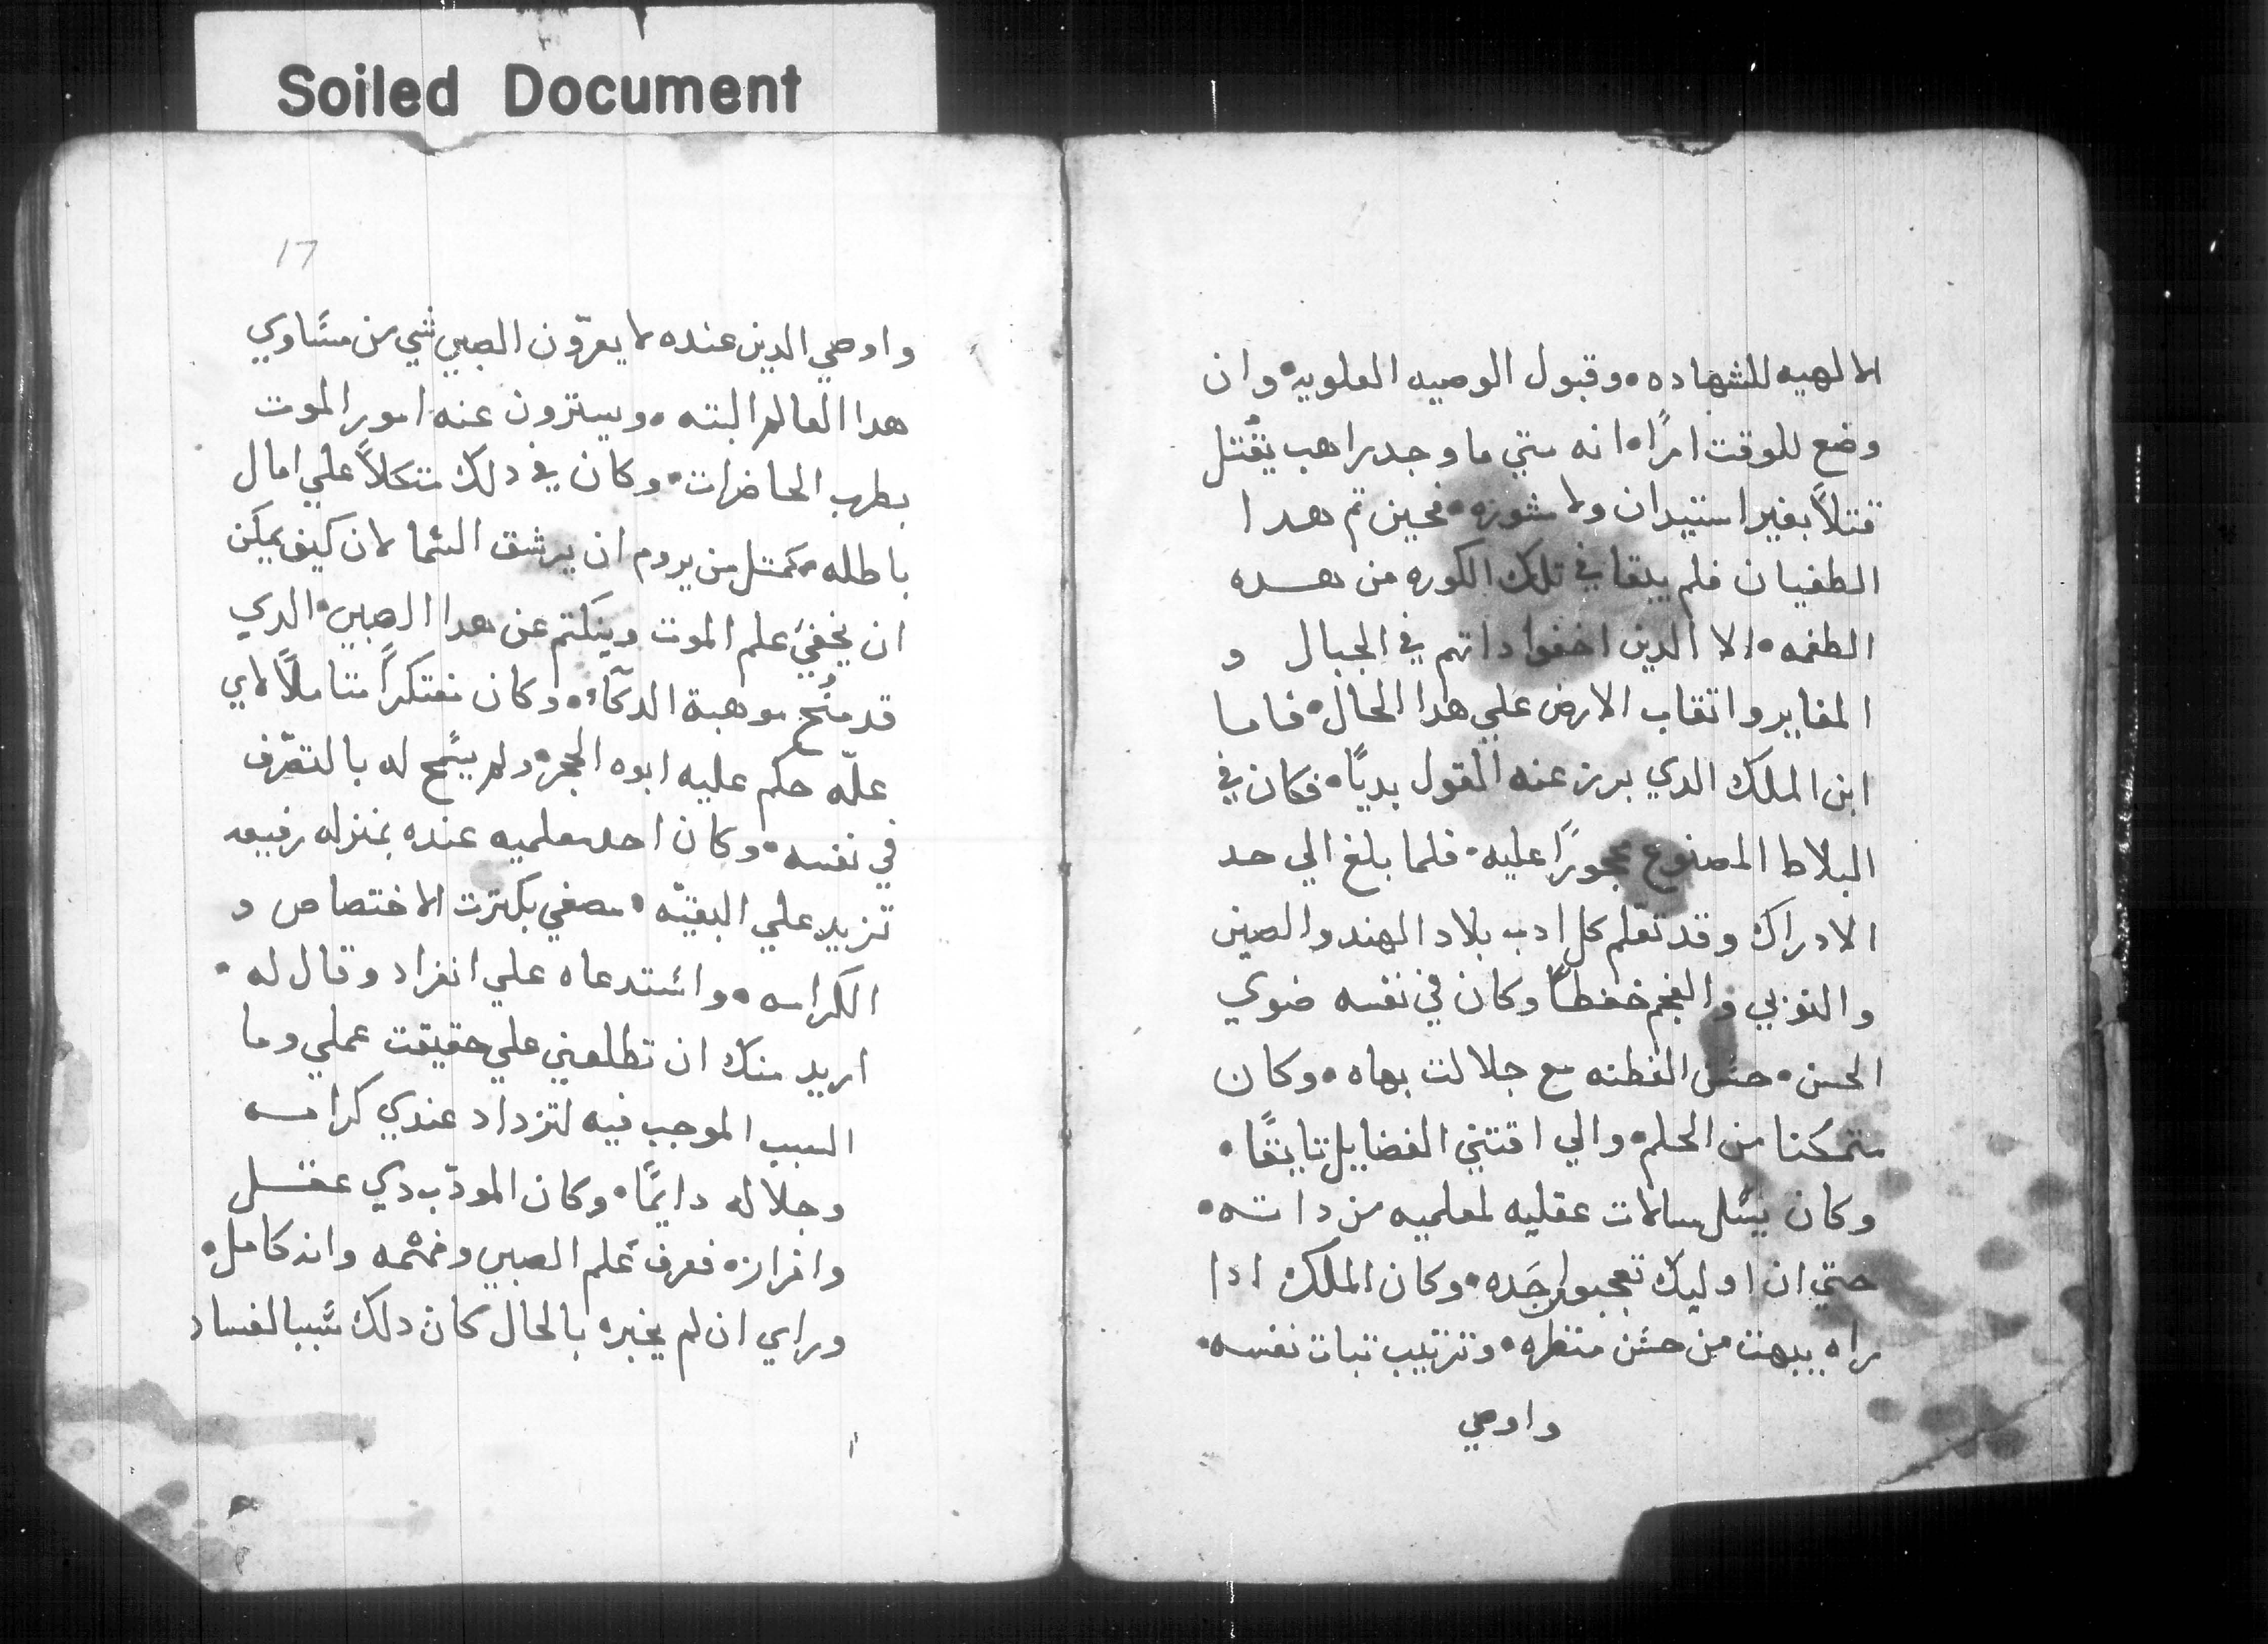 Soiled Document
الالهيه للشهاده • وقبول الوصيه العلويه • وان
وضع للوقت امرًا • انه متي ما وجد راهب يقتل
قتلاً بغير استيدان ولا مشوره • فحين تم هدا
الطغيان فلم يبقا في تلك الكوره من هده
الطغمه • الا الدين اخفوا داتهم في الجبال و
المغاير واتقاب الارض علي هدا الحال • فاما
ابن الملك الدي برز عنه القول بديًا • فكان في
البلاط المصنوع محجورًا عليه • فلما بلغ الي حد
الادراك وقد تعلم كل ادب بلاد الهند والصين
والنوبي والعجم حفظاً وكان في نفسه ضوي
الحسن • حسن الفطنه مع جلالت بهاه • وكان
متمكنا من الحلم • والي اقتني الفضايل تايقًا •
وكان يسل سالات عقليه لمعلميه من داته •
حتي ان اوليك تعجبوا • وكان الملك ادا
راه يبهت من حسن منظره • وترتيب تبات نفسه •
واوصي
17
واوصي الدين عنده لا يعرّون الصبي شي من مساوي
هدا العالم البته • ويسترون عنه امور الموت
بطرب الحاضرات • وكان في دلك متكلاً علي امال
باطله • كمتل من يروم ان يرشق السما لان كيف يمكن
ان يخفيَ علم الموت وينكتم عن هدا الصبي • الدي
قد مُنح موهبة الدكاء • وكان مفتكراً متاملاً لاي
علّه حكم عليه ابوه الحجر • ولم يسمح له بالتصرّف
في نفسه • وكان احد معلميه عنده بمنزله رفيعه
تزيد علي البقيّه • مصغي بكترت الاختصاص و
الكرامه • واستدعاه علي انفراد وقال له •
اريد منك ان تطلعني علي حقيقت عملي وما
السبب الموجب فيه لتزداد عندي كرامه
وجلاله دايمًا • وكان المودّب دي عقل
وافرازه فعرف علم الصبي وفهمه وانه كامل •
وراي ان لم يخبره بالحال كان دلك سببا لفساد